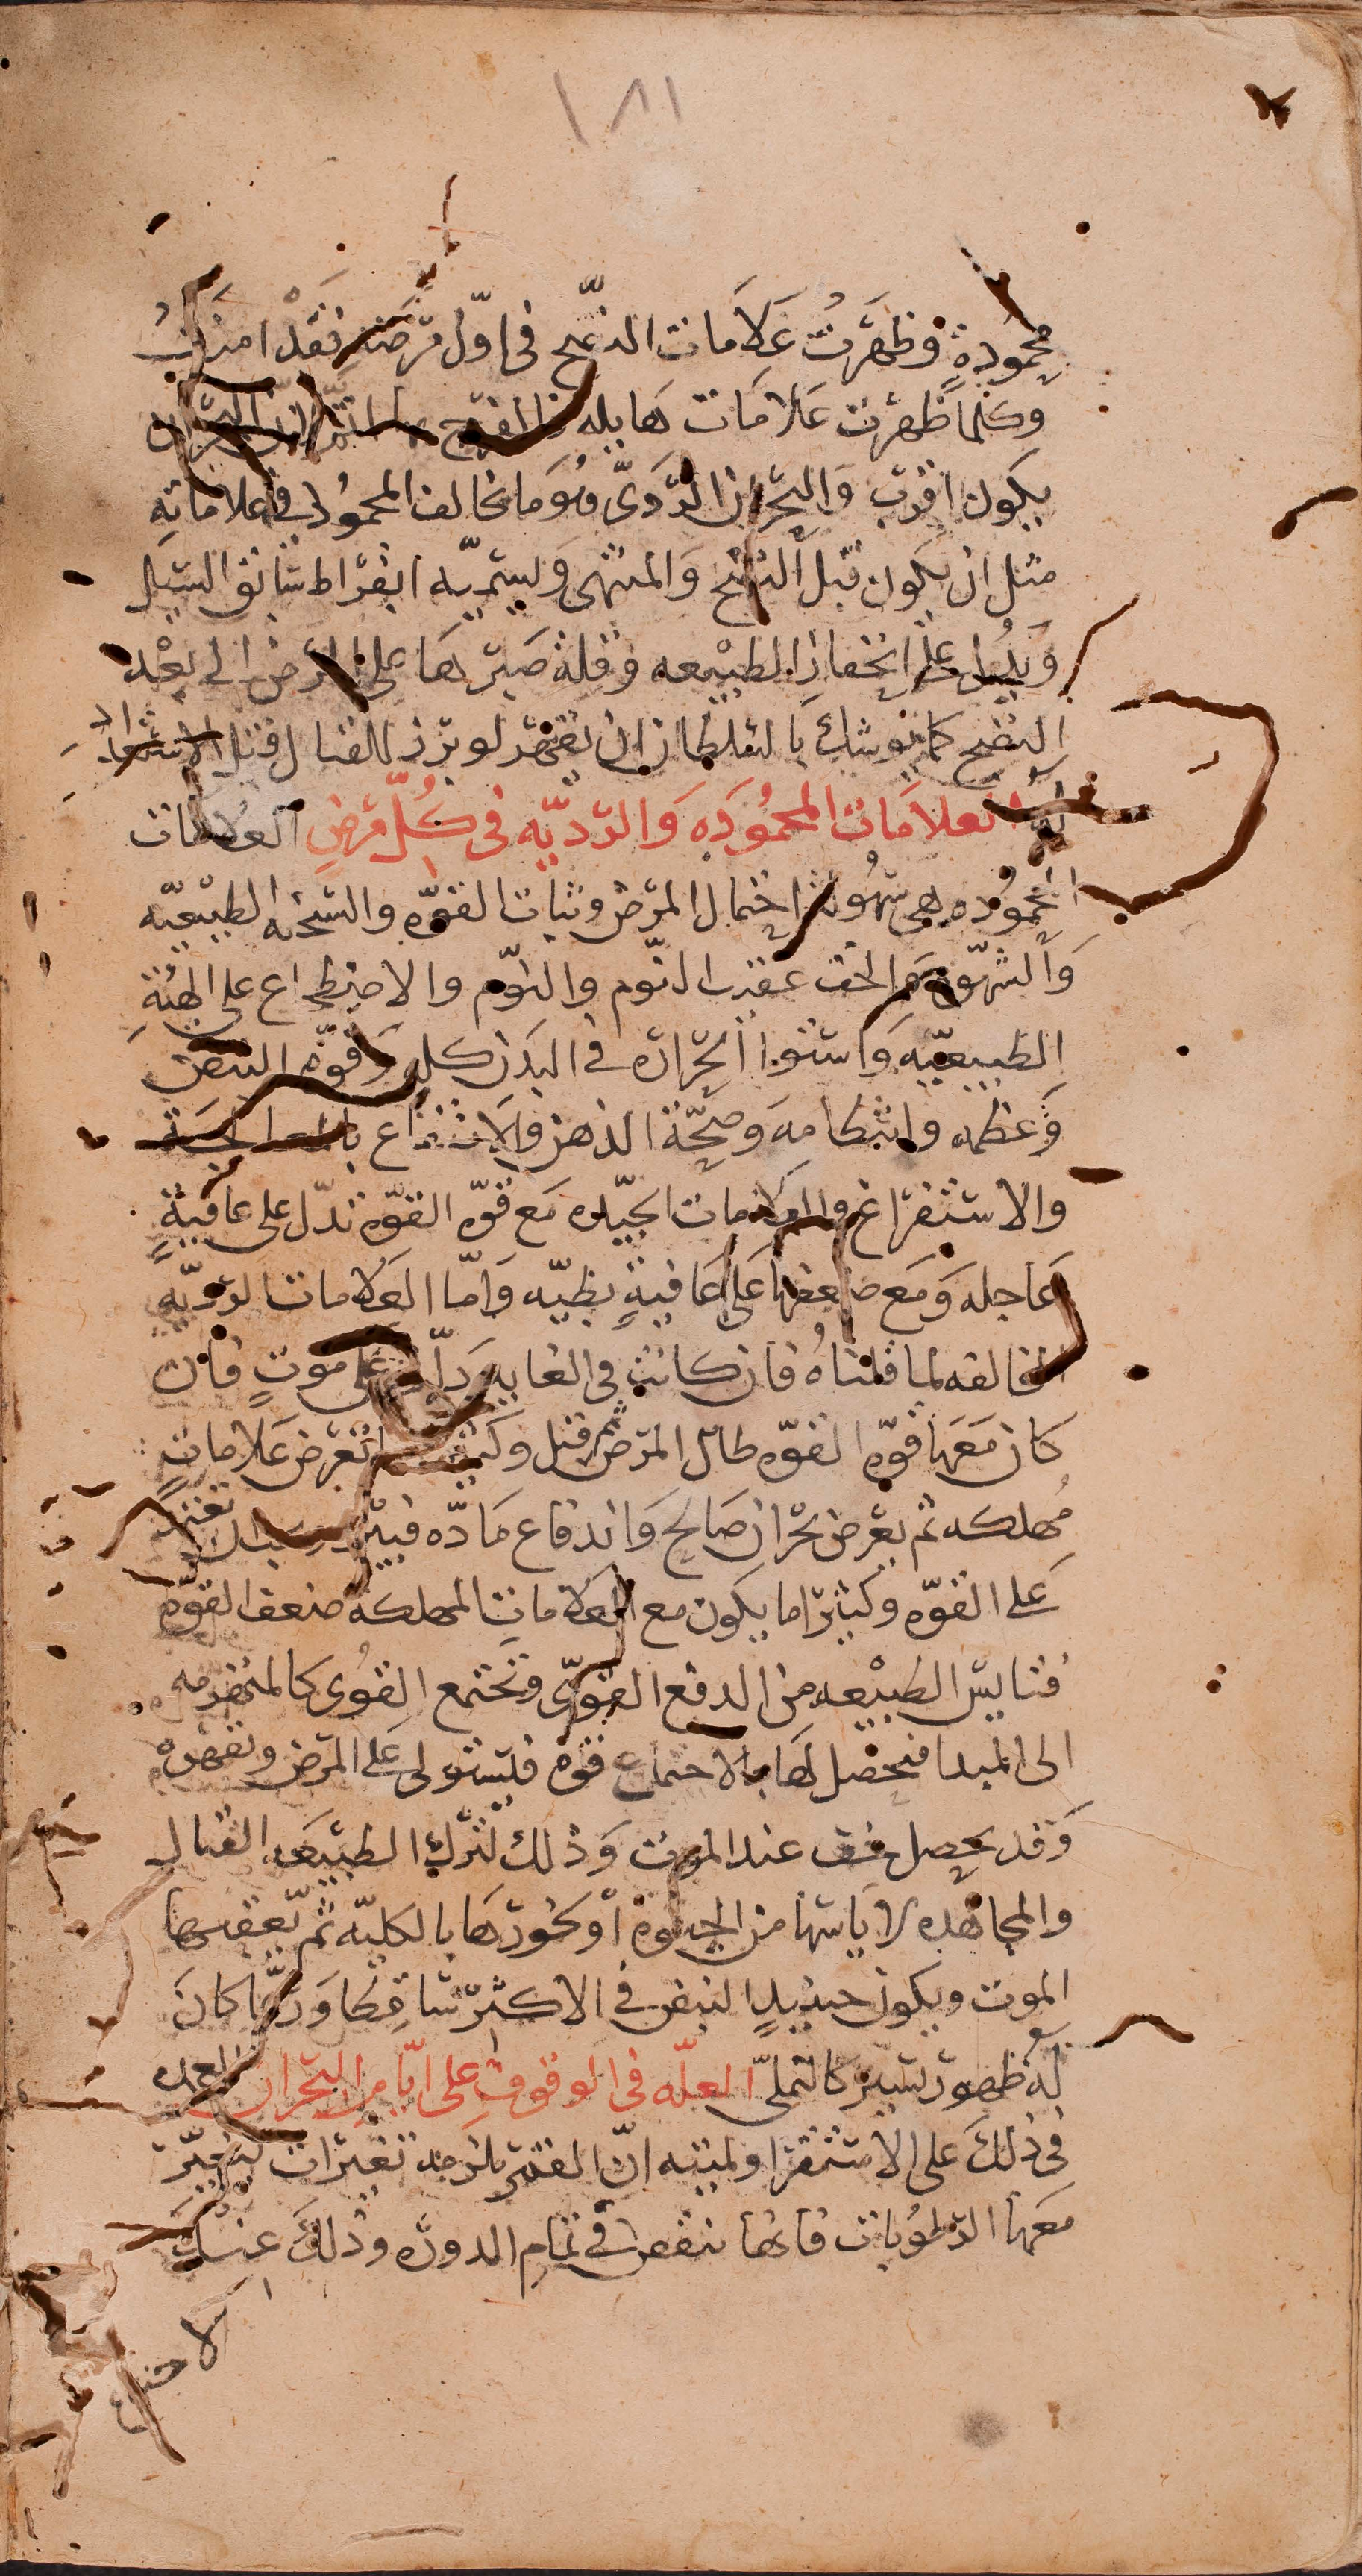 ١٨١
محمودة وظهرت علامات النضج في اول مرضه فقد امنت
وكلما ظهرت علامات هايله البحران
يكون اقرب والبحران الردي هو ما يخالف المحمود في علاماته
مثل ان يكون قبل النضج والمنتهى ويسميه ابقراط سابق السبيل
ويدل على انحفاز الطبيعه وقلة صبرها على المرض الى بعد
النضج كما يوشك بالسلطان ان يقهر لو برز للقتال قبل الاستعداد
العلامات المحموده والرديه في كل مرض العلامات
المحموده هي سهولة احتمال المرض وثبات القوه والسحنه الطبيعيه
والشهوه والخف عقيب النوم والنوم والاضطجاع على الهيئة
الطبيعيه واستوا الحراره في البدن كله وقوه النبض
وعظمه وانتظامه وصحة الذهن والانتفاع
والاستفراغ والعلامات الجيده مع قوه القوه تدل على عافية
عاجله ومع ضعفها على عافية بطيه واما العلامات الرديه
المخالفه لما قلناه فان كانت في الغايه دلت على موت فان
كان معها قوه القوه طال المرض ثم قتل وكثيرا ما تعرض علامات
مهلكه ثم يعرض بحران صالح واندفاع ماده
على القوه وكثيرا ما يكون مع العلامات المهلكه ضعف القوه
فتايس الطبيعه من الدفع القوي وتجتمع القوى كالمنهزمه
الى المبدا فيحصل لها بالاجتماع قوه فيستولى على المرض وتقهره
وقد يحصل خف عند الموت وذلك لترك الطبيعه القتال
والمجاهده لاياسها من الحيوة او كخورها بالكليه ثم يعقبها
الموت ويكون حينيد النبض في الاكثر ساقطا وربما كان
له ظهور يسير كالتملي العله في الوقوف على ايام البحران العمده
في ذلك على الاستقرا ولميته ان القمر يلزمه تغيرات يتغير
معها الرطوبات فانها تنقص في تمام الدوره وذلك عند
الاجتماع